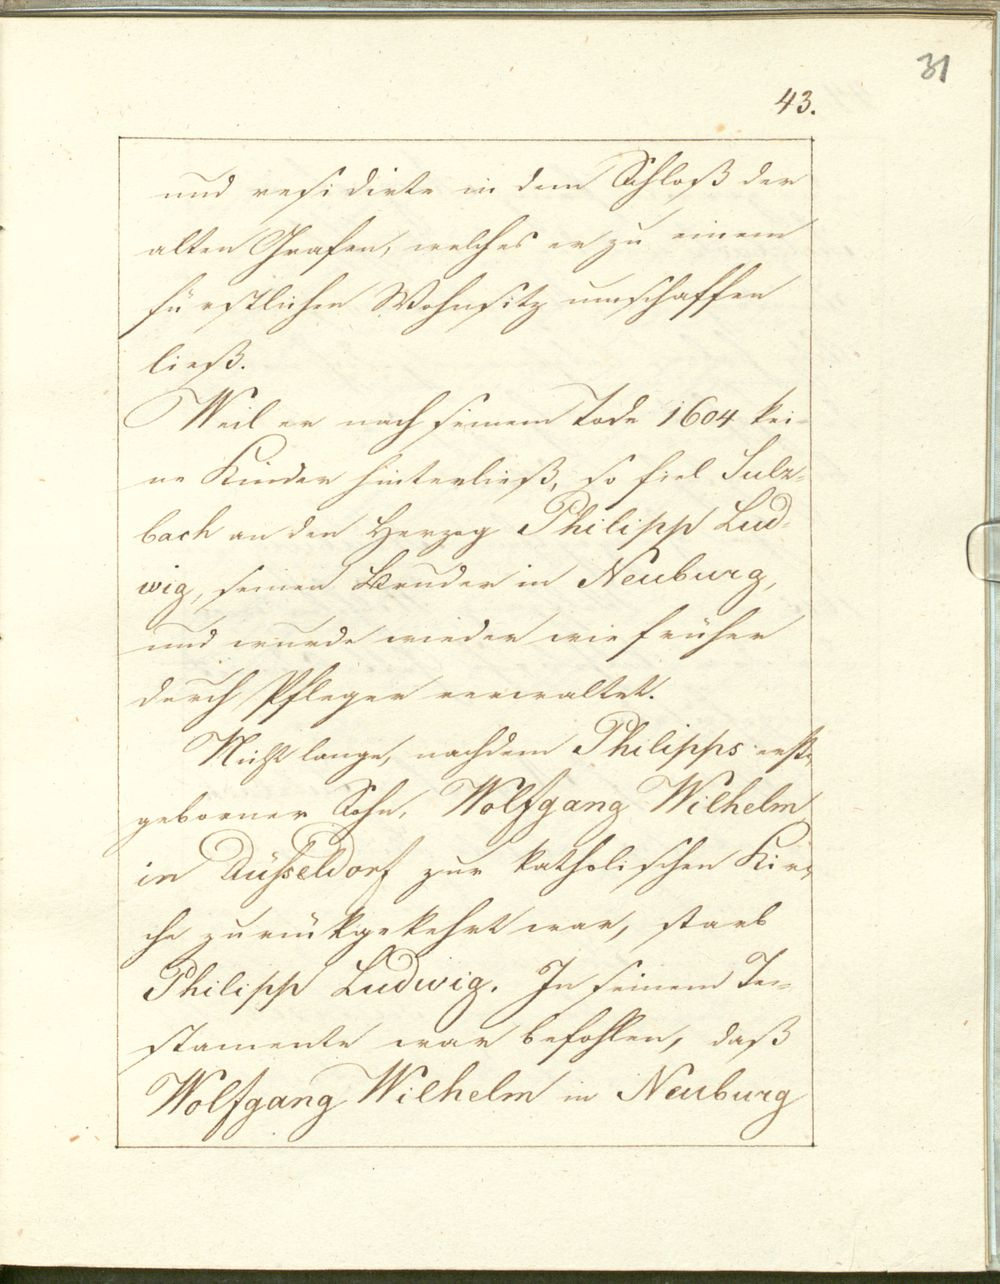 31
43.
und residirte in dem Schloß der
alten Grafen, welches er zu einem
fürstlichen Wohnsitz umschaffen
ließ.
Weil er nach seinem Tode 1604 kei-
ne Kinder hinterließ, so fiel Sulz-
bach an den Herzog Philipp Lud-
wig, seinen Bruder in Neuburg,
und wurde wieder wie früher
durch Pfleger verwaltet.
Nicht lange, nachdem Philipps erst-
geborner Sohn, Wolfgang Wilhelm
in Düsseldorf zur katholischen Kir-
che zurückgekehrt war, starb
Philipp Ludwig. In seinem Te-
stamente war befohlen, daß
Wolfgang Wilhelm in Neuburg